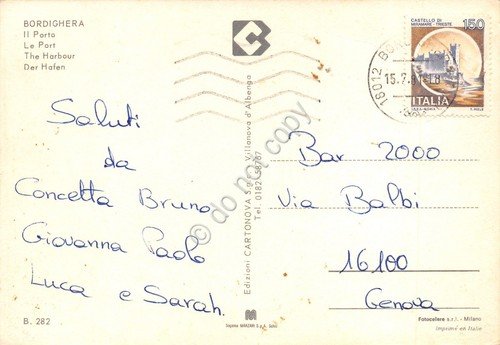 BORDIGHERA
Il Porto
Le Port
The Harbour
Der Hafen
Saluti
da
Concetta Bruno
Giovanna Paolo
Luca e Sarah.
B. 282
Edizioni CARTONOVA S.p.A. Villanova d'Albenga
Tel. 0182/58767
do not copy
CASTELLO DI
MIRAMARE - TRIESTE
150
ITALIA
18012
15.7.8
Bar 2000
Via Balbi
16100
Genova
Fotocelere s.r.l. - Milano
Imprimé en Italie